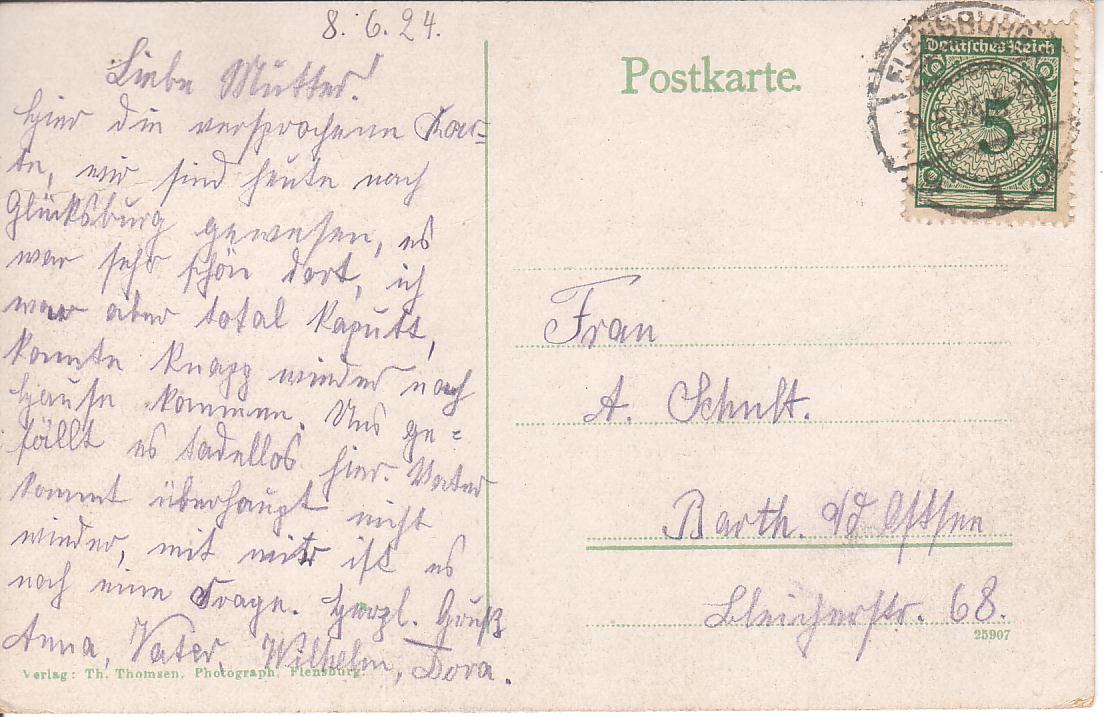 8. 6. 24.
Liebe Mutter!
Hier die versprochene Kar=
te, wir sind heute nach
Glücksburg gewesen, es
war sehr schön dort, ich
war aber total kaputt,
konnte knapp wieder nach
Hause kommen. Uns ge=
fällt es tadellos hier. Vater
kommt überhaupt nicht
wieder, mit mir ist es
noch eine Frage. Herzl. Gruß
Anna, Vater, Wilhelm, Dora.
Verlag: Th. Thomsen, Photograph, Flensburg.
Postkarte.
FLENSBURG
Deutsches Reich
5
Frau
A. Schult.
Barth. a/d Ostsee
Bleicherstr. 68.
25907